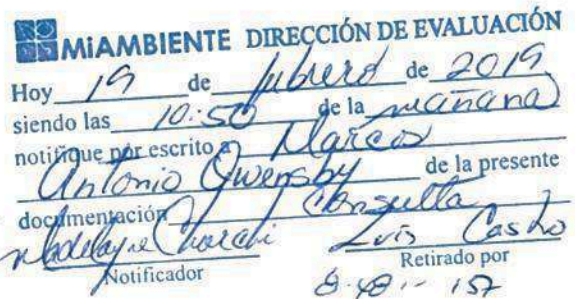 MiAMBIENTE DIRECCIÓN DE EVALUACIÓN
Hoy 19 de febrero de 2019
siendo las 10:50 de la mañana
notifique por escrito a Marcos
Antonio Qwensby de la presente
documentación Consulta
Luis Castro
Notificador Retirado por